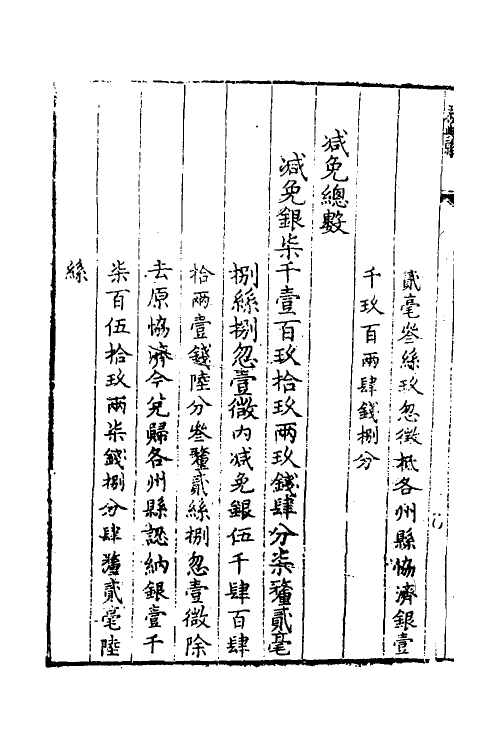 貳毫叁絲玖忽徵抵各州縣恊濟銀壹
千玖百兩肆錢捌分
减免總數
减免銀柒千壹百玖拾玖兩玖錢肆分柒釐貳毫
捌絲捌忽壹微内减免銀伍千肆百肆
拾兩壹錢陸分叁釐貳絲捌忽壹微除
去原恊濟今兑歸各州縣認納銀壹千
柒百伍拾玖兩柒錢捌分肆釐貳毫陸
絲